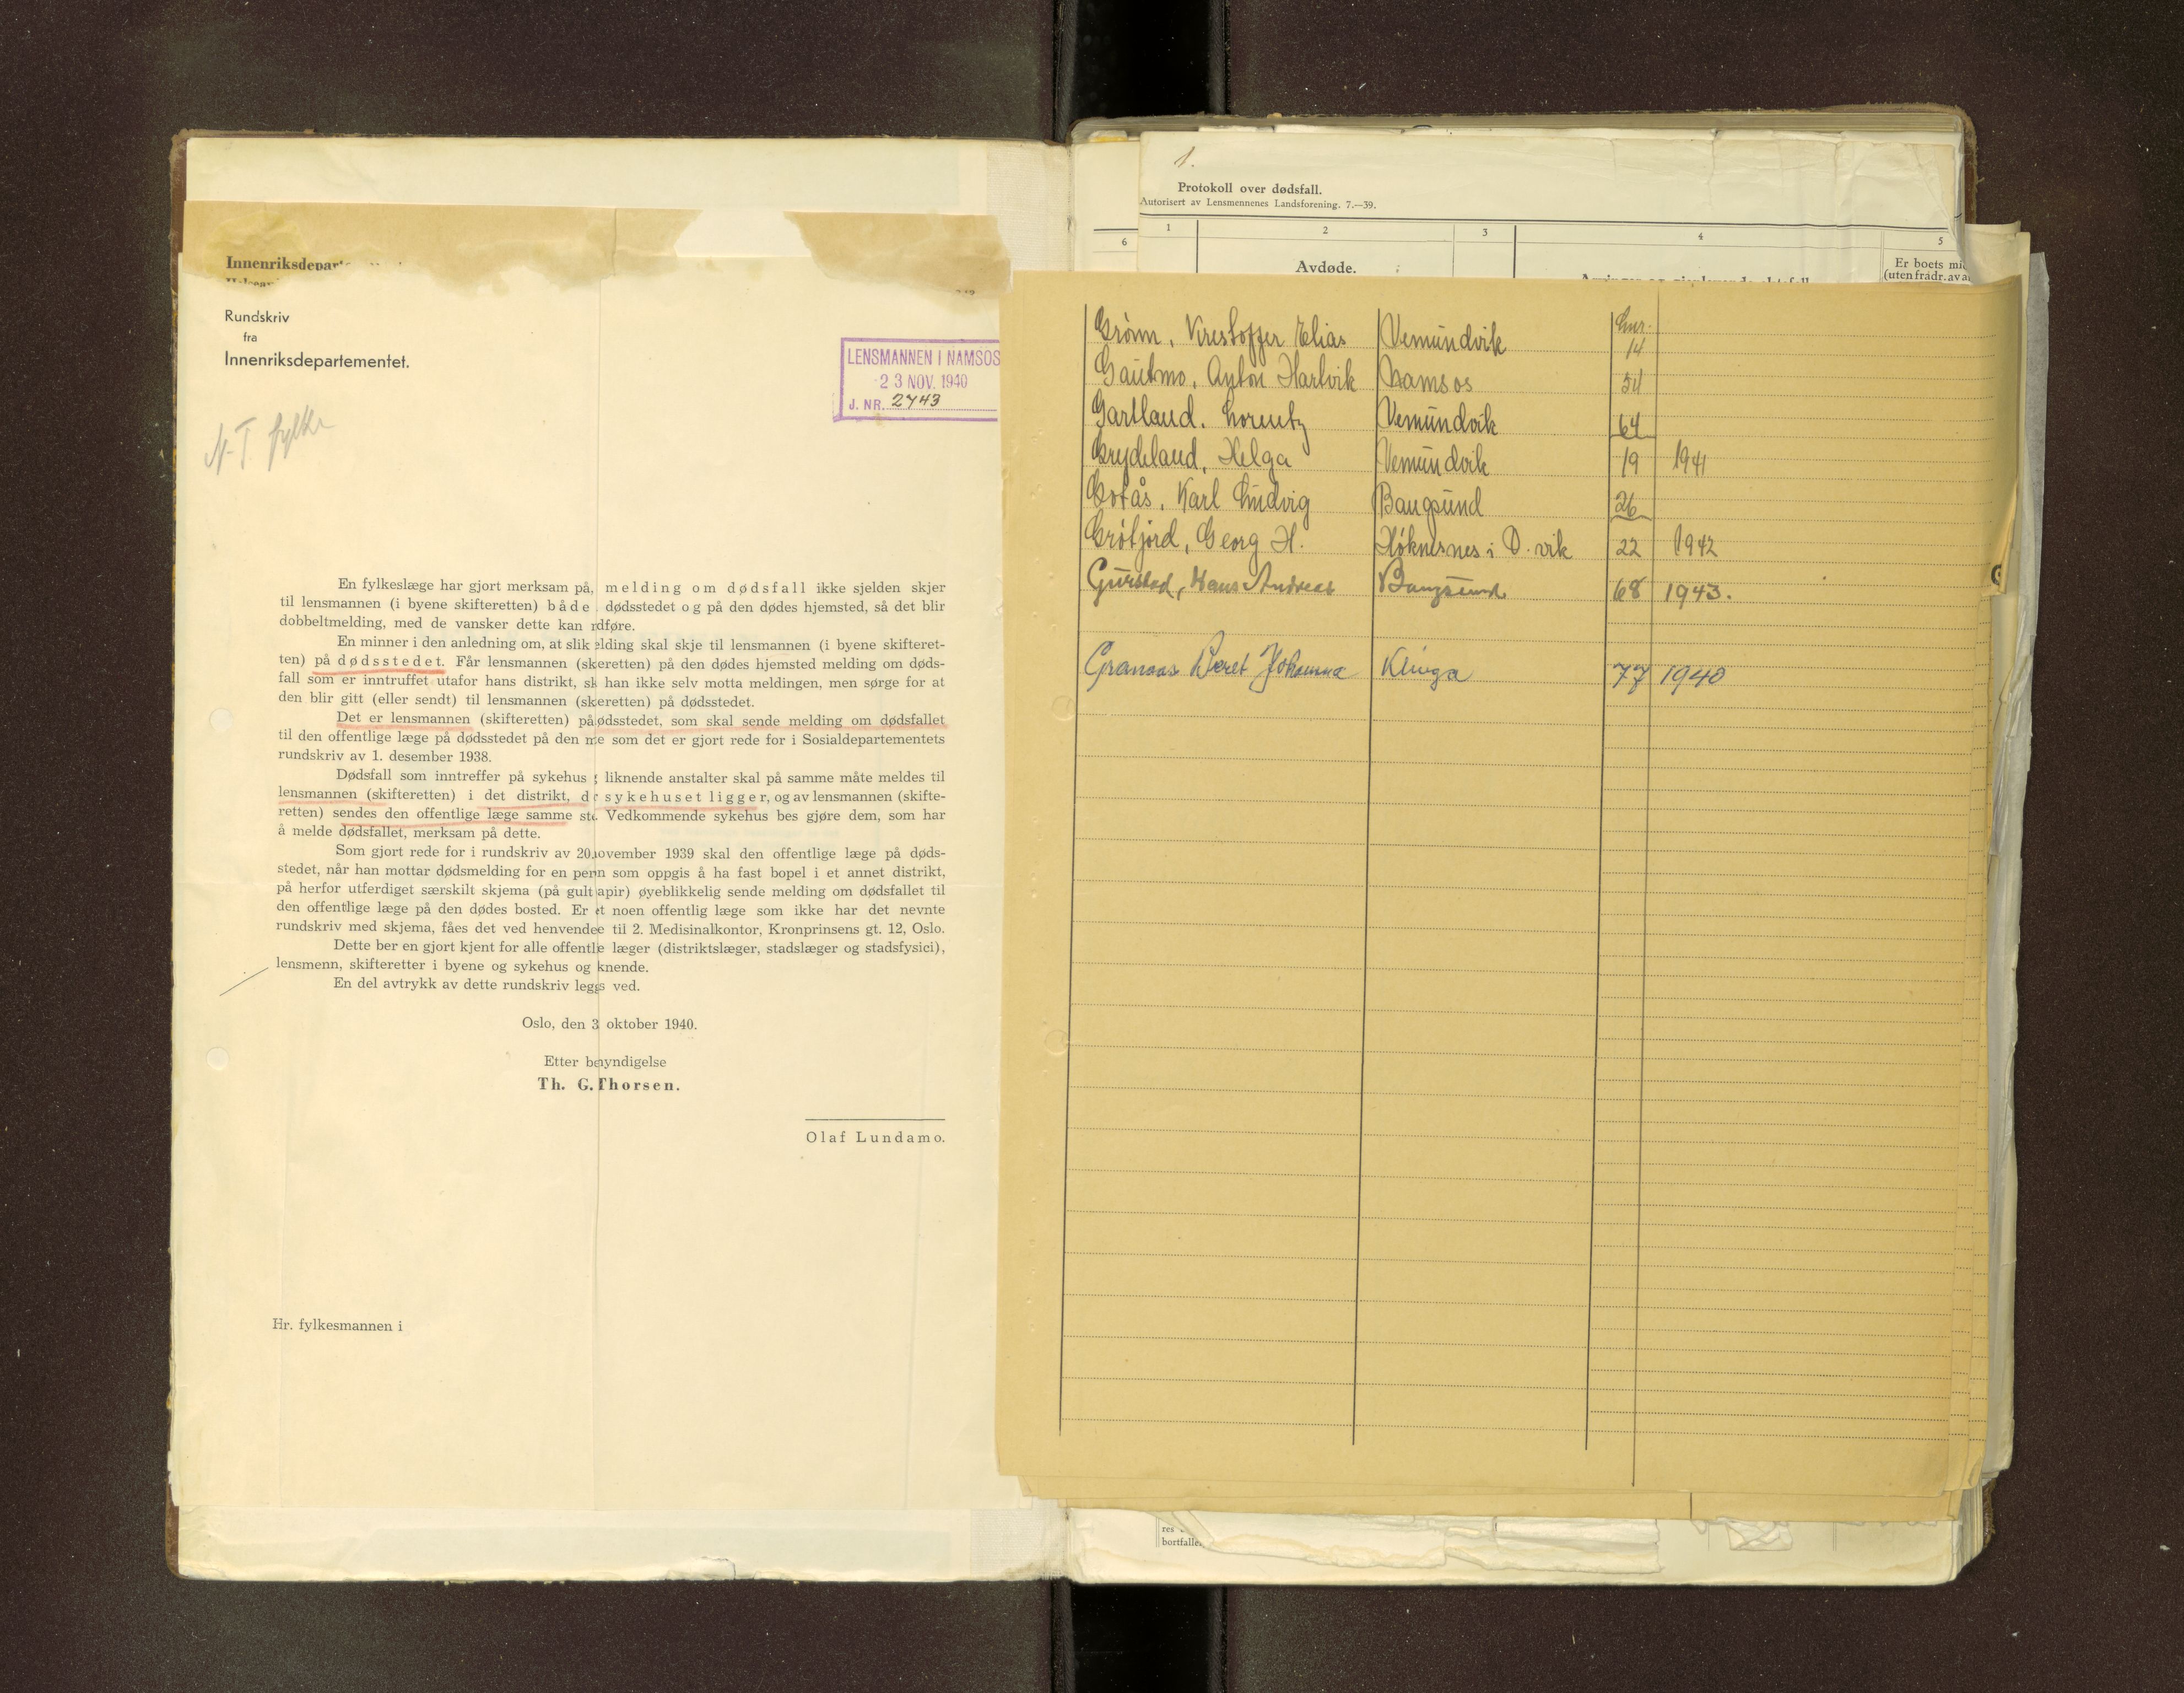 Innenriksdepar
Rundskriv
fra
Innenriksdepartementet.
LENSMANNEN I NAMSOS
23 NOV. 1940
J. NR. 2743
N-T. fylke
En fylkeslæge har gjort merksam på, melding om dødsfall ikke sjelden skjer
til lensmannen (i byene skifteretten) både dødsstedet og på den dødes hjemsted, så det blir
dobbeltmelding, med de vansker dette kan dføre.
En minner i den anledning om, at slik elding skal skje til lensmannen (i byene skifteret-
ten) på dødsstedet. Får lensmannen (skeretten) på den dødes hjemsted melding om døds-
fall som er inntruffet utafor hans distrikt, sk han ikke selv motta meldingen, men sørge for at
den blir gitt (eller sendt) til lensmannen (skeretten) på dødsstedet.
Det er lensmannen (skifteretten) på ødsstedet, som skal sende melding om dødsfallet
til den offentlige læge på dødsstedet på den me som det er gjort rede for i Sosialdepartementets
rundskriv av 1. desember 1938.
Dødsfall som inntreffer på sykehus liknende anstalter skal på samme måte meldes til
lensmannen (skifteretten) i det distrikt, d r sykehuset ligger, og av lensmannen (skifte-
retten) sendes den offentlige læge samme ste. Vedkommende sykehus bes gjøre dem, som har
å melde dødsfallet, merksam på dette.
Som gjort rede for i rundskriv av 20 november 1939 skal den offentlige læge på døds-
stedet, når han mottar dødsmelding for en pern som oppgis å ha fast bopel i et annet distrikt,
på herfor utferdiget særskilt skjema (på gult apir) øyeblikkelig sende melding om dødsfallet til
den offentlige læge på den dødes bosted. Er et noen offentlig læge som ikke har det nevnte
rundskriv med skjema, fåes det ved henvendee til 2. Medisinalkontor, Kronprinsens gt. 12, Oslo.
Dette ber en gjort kjent for alle offentle læger (distriktslæger, stadslæger og stadsfysici),
lensmenn, skifteretter i byene og sykehus og knende.
En del avtrykk av dette rundskriv leggs ved.
Oslo, den 3 oktober 1940.
Etter bemyndigelse
Th. G. Thorsen.
Olaf Lundamo.
Hr. fylkesmannen i
1.
Protokoll over dødsfall.
Autorisert av Lensmennenes Landsforening. 7.—39.
6 1 2 3 4 5
Avdøde.
Er boets mi
(uten fradr. av a
Lnr.
Grønn, Krestoffer Elias Vemundvik 14
Gautmo, Anton Hartvik Namsos 54
Gartland, Lorentz Vemundvik 64
Grydeland, Helga Vemundvik 19 1941
Gotås, Karl Ludvig Bangsund 26
Grøtjord, Georg H. Høknesnes i V. vik 22 1942
Gurstad, Hans Andreas Bangsund 68 1943.
Granaas Beret Johanna Klinga 77 1940
G
res
bortfalle